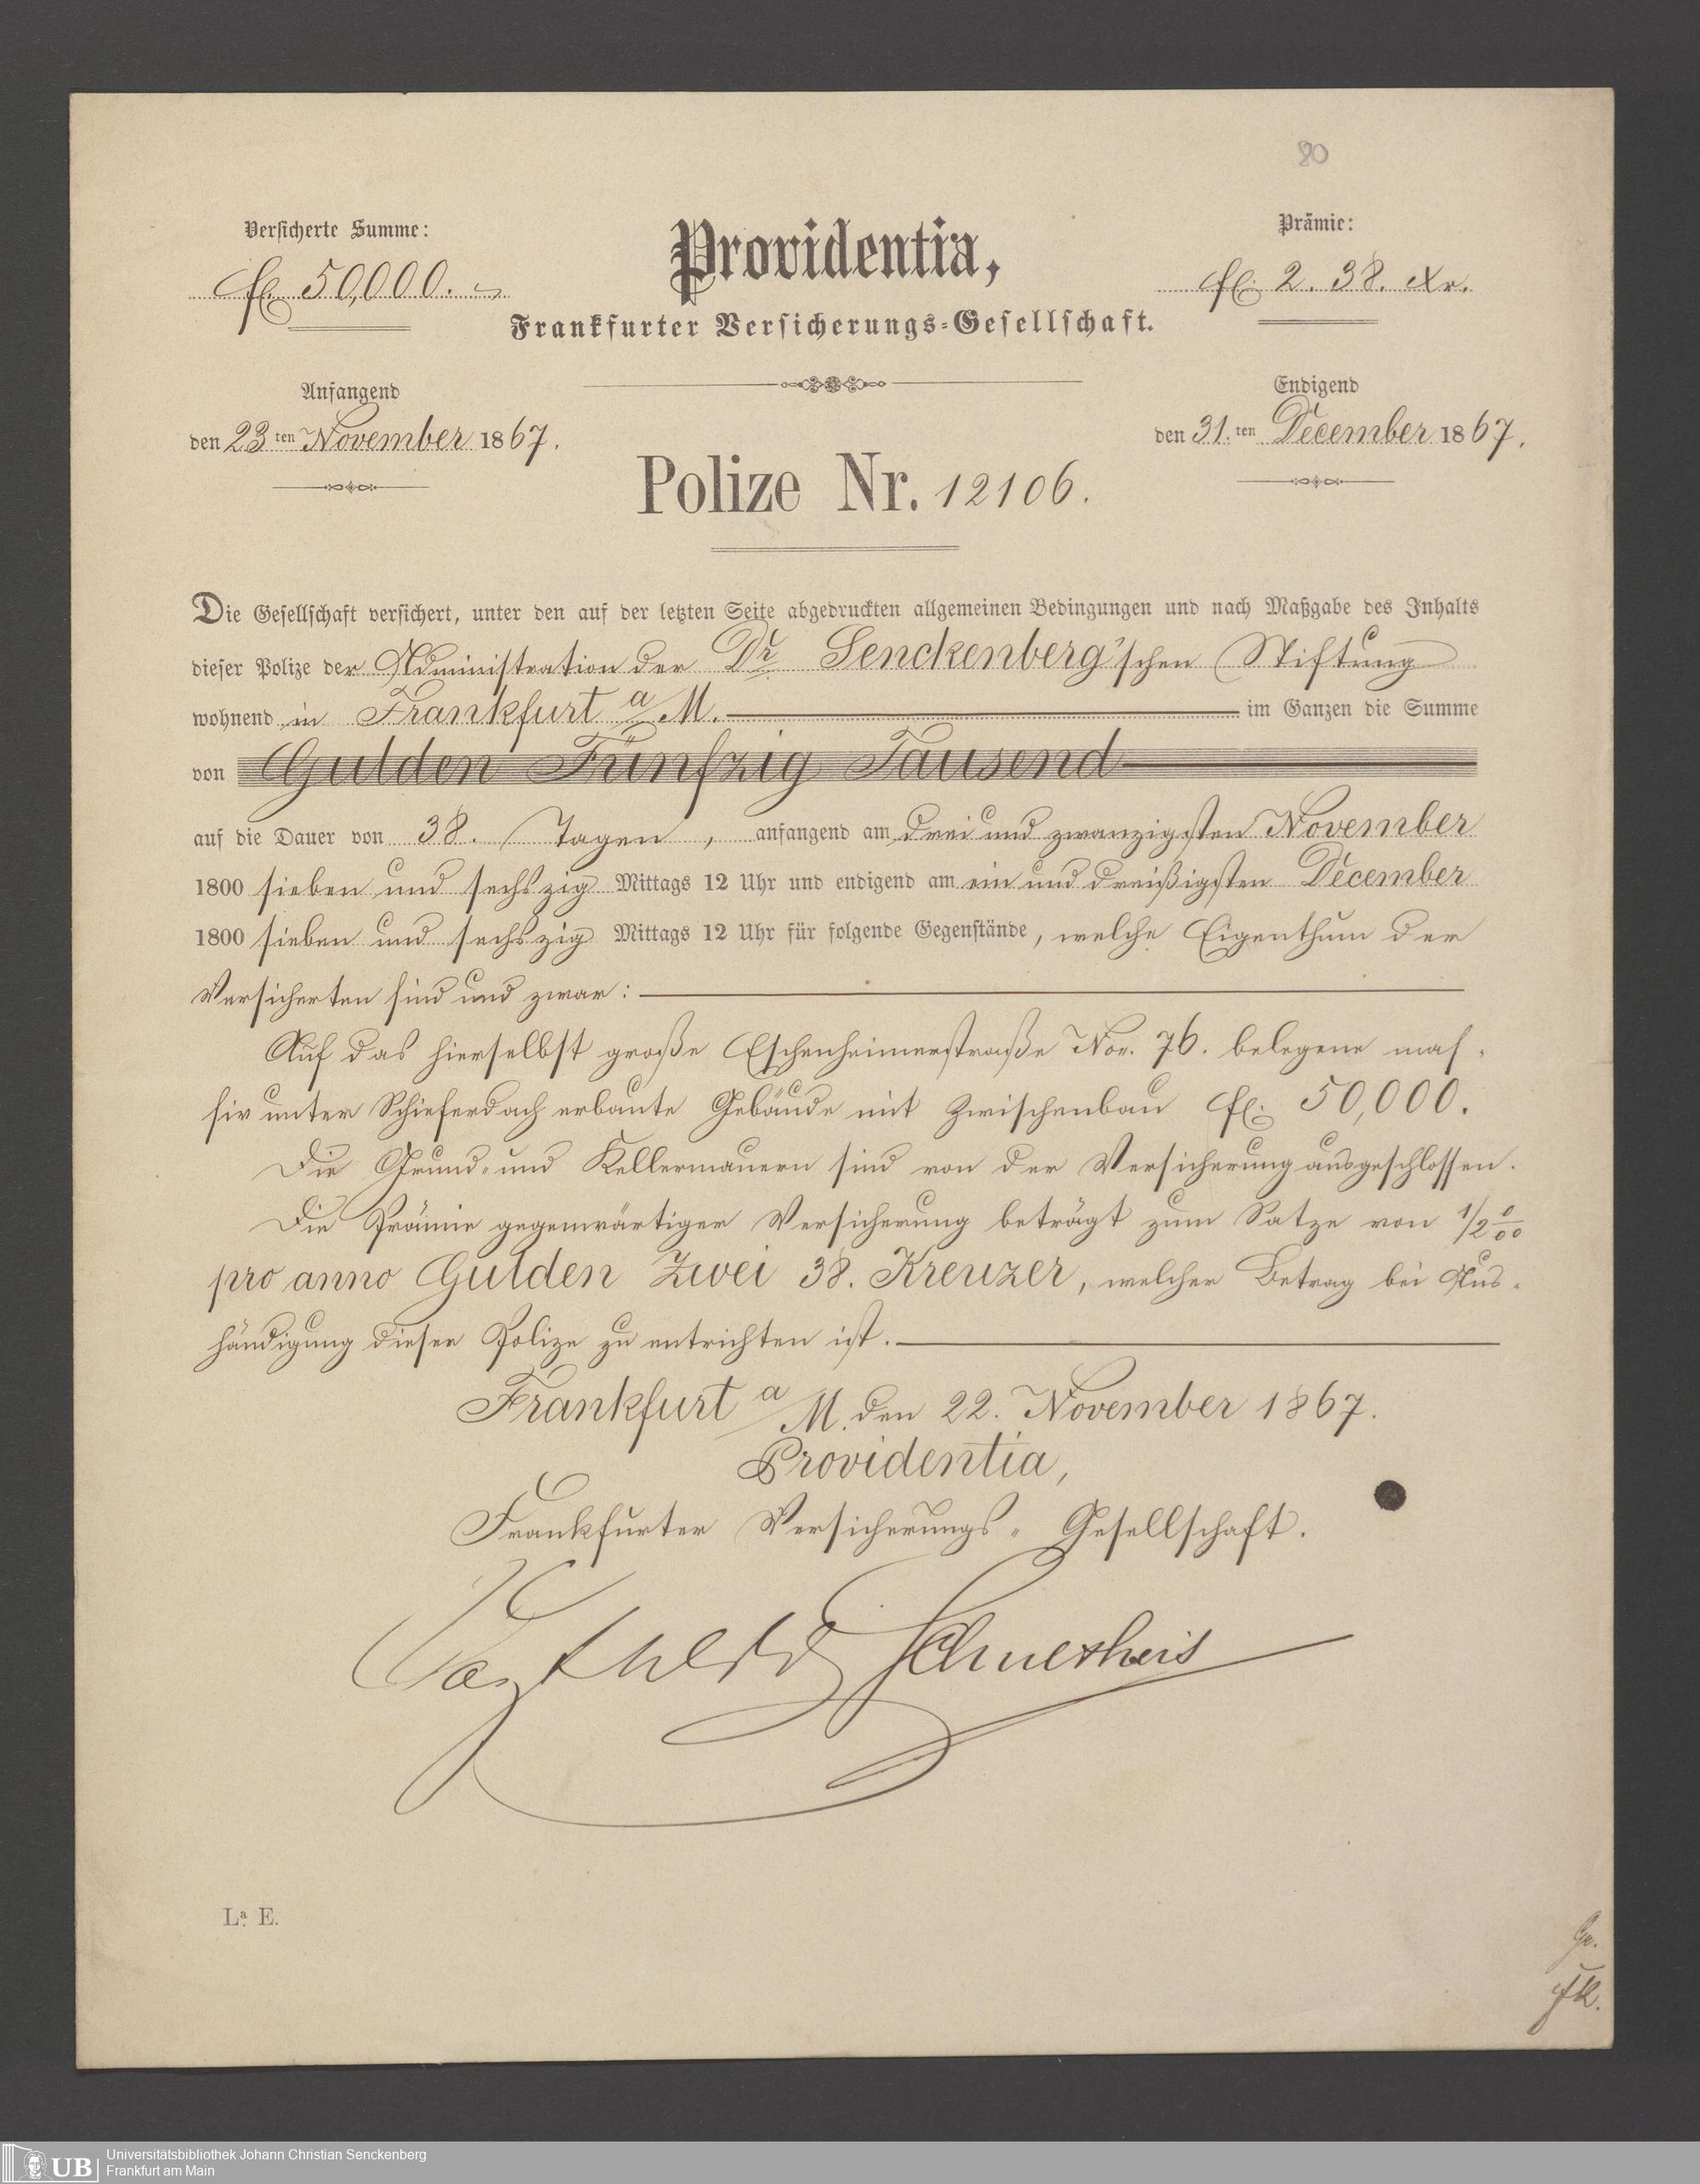 80
Versicherte Summe:
fl. 50,000.
Providentia,
Frankfurter Versicherungs-Gesellschaft.
Prämie:
fl. 2. 38. Xr.
Anfangend
den 23ten November 1867.
Endigend
den 31.ten December 1867.
Polize Nr. 12106.
Die Gesellschaft versichert, unter den auf der letzten Seite abgedruckten allgemeinen Bedingungen und nach Maßgabe des Inhalts
dieser Polize der Administration der Dr. Senckenberg'schen Stiftung
wohnend in Frankfurt a/M. im Ganzen die Summe
von Gulden Fünfzig Tausend
auf die Dauer von 38. Tagen, anfangend am drei und zwanzigsten November
1800 sieben und sechszig Mittags 12 Uhr und endigend am ein und dreißigsten December
1800 sieben und sechszig Mittags 12 Uhr für folgende Gegenstände, welche Eigenthum der
Versicherten sind und zwar:
Auf das hierselbst große Eschenheimerstraße Nor. 76. belegene mas-
siv unter Schieferdach erbaute Gebäude mit Zwischenbau fl. 50,000.
Die Grund- und Kellermauern sind von der Versicherung ausgeschlossen.
Die Prämie gegenwärtiger Versicherung beträgt zum Satze von 1/2 0/00
pro anno Gulden Zwei 38. Kreuzer, welcher Betrag bei Aus-
händigung dieser Polize zu entrichten ist.
Frankfurt a/M. den 22. November 1867.
Providentia,
Frankfurter Versicherungs-Gesellschaft.
La. E.
Gr.
fk.
UB
Universitätsbibliothek Johann Christian Senckenberg
Frankfurt am Main